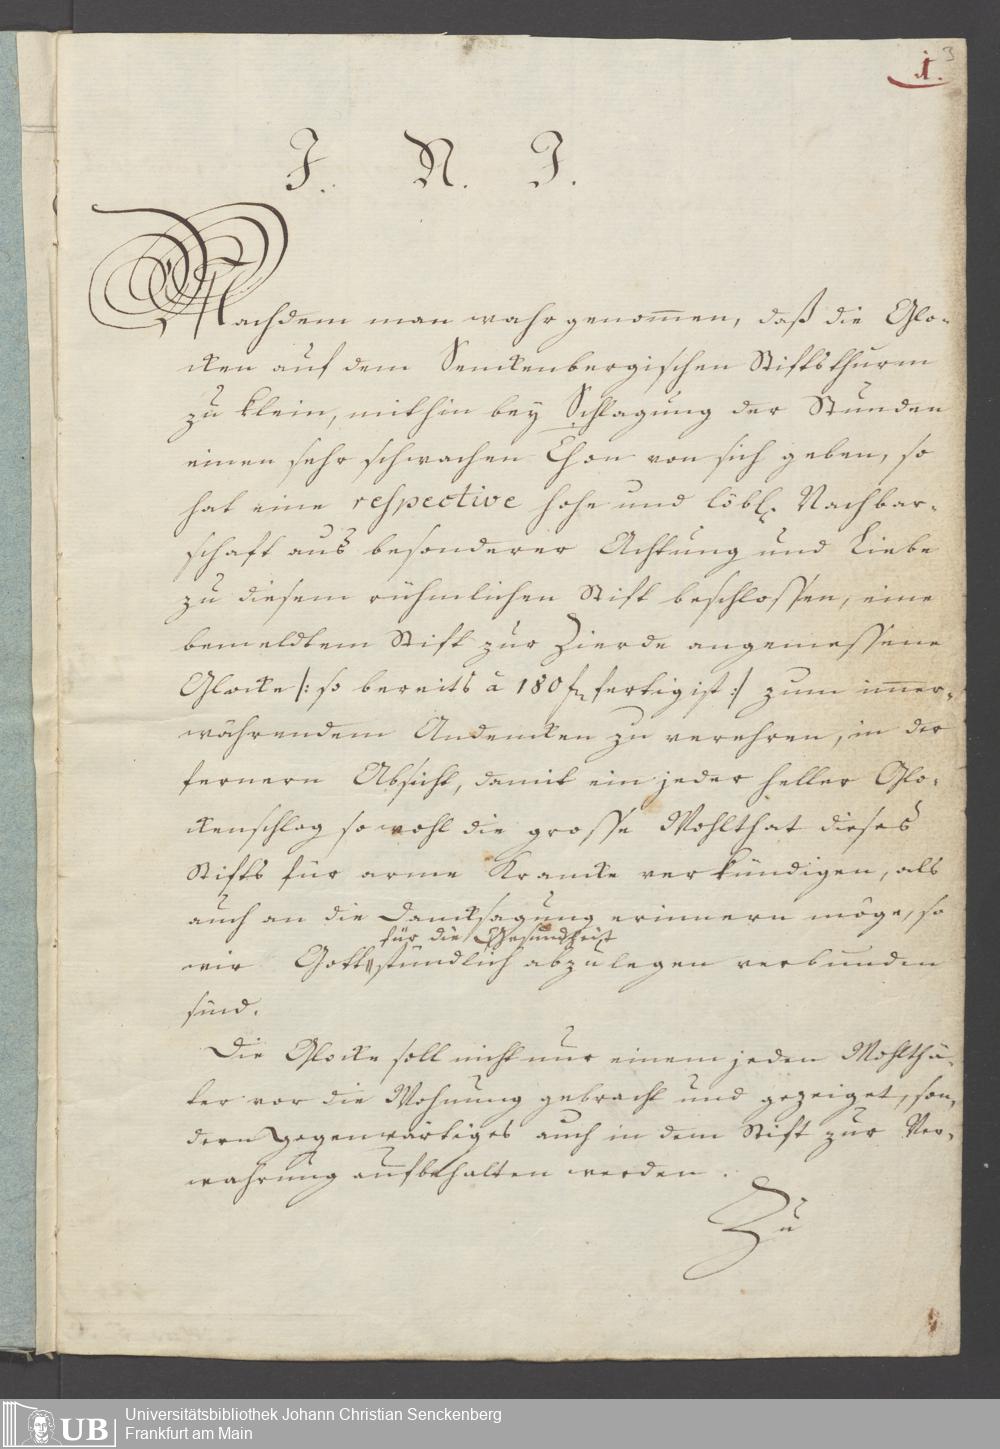 3
1.
J. N. J.
Nachdem man wahrgenom̅en, daß die Glo-
cken auf dem Senckenbergischen Stiftsthurm
zu klein, mithin bey Schlagung der Stunden
einen sehr schwachen Thon von sich geben, so
hat eine respective hohe und löbl. Nachbar-
schaft aus besonderer Achtung und Liebe
zu diesem rühmlichen Stift beschlossen, eine
bemeldtem Stift zur Zierde angemessene
Glocke |: so bereits à 180 fertig ist :| zum im̅er-
währendem Andencken zu verehren, in der
fernern Absicht, damit ein jeder heller Glo-
ckenschlag sowohl die grosse Wohlthat dieses
Stifts für arme Krancke verkündigen, als
auch an die Dancksagung erinnern möge, so
für die Gesundheit
wir Gott stündlich abzulegen verbunden
sind.
Die Glocke soll nicht nur einem jeden Wohlthä-
ter vor die Wohnung gebracht und gezeiget, son-
dern gegenwärtiges auch in dem Stift zur Ver-
wahrung aufbehalten werden.
Zu
UB
Universitätsbibliothek Johann Christian Senckenberg
Frankfurt am Main